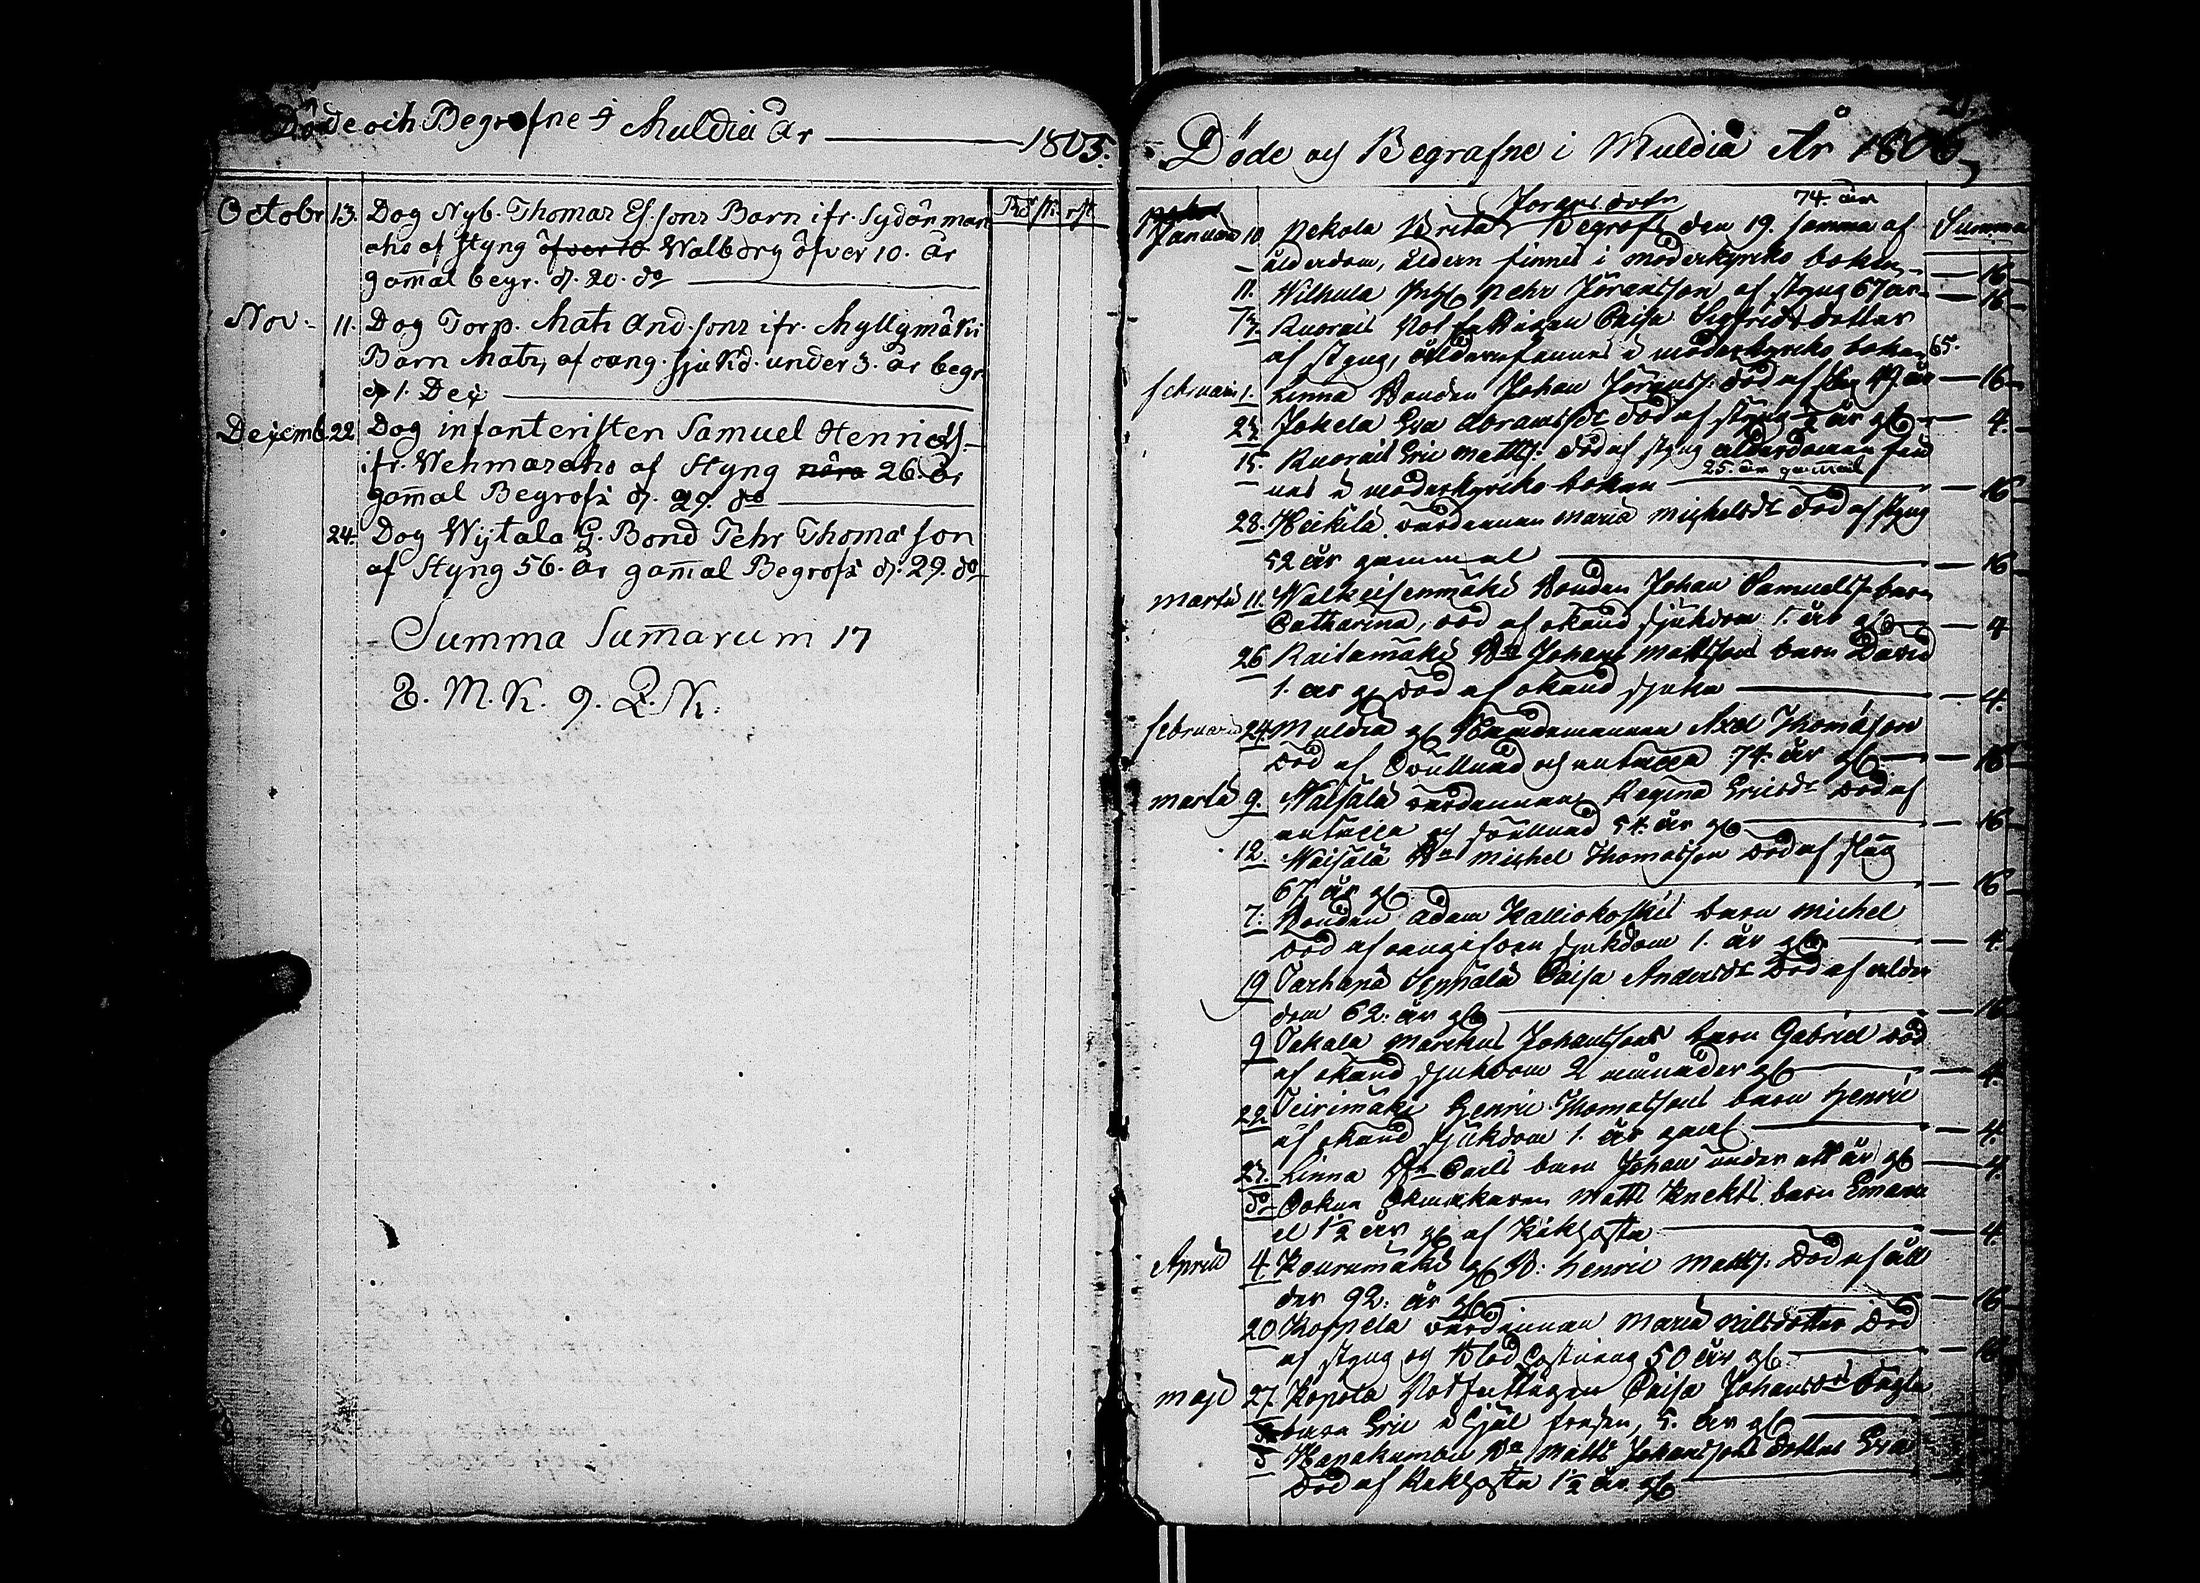 Döde och Begrafne i Muldia År 1805.
Rd. sk. rst.
Octobr 13. Dog Nyb. Thomas Es. sons Barn ifr. Sydän maan
aho af Styng öfver 10 Walborg öfver 10. år
gamal begr. d. 20. do
Nov. 11. Dog Torp. Mats And. sons ifr. Myllymäki
Barn Mats, af oang. sjukd. under 3. år begr.
d. 1. Dec.
Decemb. 22. Dog infanteristen Samuel Henrics.
ifr. Wehmasaho af Styng nära 26. år
gamal Begrofs d. 29. do
24. Dog Wijtala G. Bond Pehr Thomasson
af Styng 56. år gamal Begrofs d. 29. do
Summa Sumarum 17
M. K. 9. Q.K.
Döde och Begrafne i Muldia År 1806,
Jörans dotr 74. år
Januari 10 Pekola Brita Begrofs den 19. samma af
Summa
ålderdom, åldern finnes i moderkyrko boken — 16
11. Wilhula Pehr Göransson af styng 67 år — 16
Ruorais Caisa Sigfrids dotter
af styng, åldern finnes i moderkyrko boken 65.
februari 1. Linna Bonden Johan Göranss. död af år — 16
Jokela Eva Abramsdr död af styng ½ år gl — 4.
15. Ruorais Eric Mattss. död af styng ålderdomen fin
25. år gammal
nes i moderkyrko boken — 16
28. Heikilä värdinnan Maria Michelsdr död af styng
52 år gammal — 16
Martii 11. Walkeisenmäki Bonden Johan Samuelss. barn
Catharina, död af okänd sjukdom 1. år gl — 4
26 Raitamäki Bn Johan Mattssons barn David
1. år gl död af okänd sjukd — 4.
februari 24 Muldia gl Nämdemannen Axel Thomasson
död af Svullnad och 74. år gl — 16
Martii 9. Waisala värdinnan Regina Ericsdr död af
och svullnad 54. år gl — 16
12. Waisala Bn Michel Thomasson död af styng
67. år gl — 16
7. Bonden Adam Kalliokoskis barn Michel
död af oangifven sjukdom 1. år gl — 4.
19 Tarhapä Seppälä Caisa Andersdr död af ålder
dom 62. år gl — 16
9 Takala Markus Johanssons barn Gabriel död
af okänd sjukdom 2 månader gl — 4.
22 Teirimäki Henric Thomassons barn Henric
af okänd sjukdom 1. år gaml — 4.
27. Linna Bn Carls barn Johan under ett år gl — 4.
do Matts Knekts barn Emanu
el 1½ år gl af Kikhosta — 4.
Aprill 4 Kourumäki gl B. Henric Matts. död af ål
der 92. år gl — 16
20 Koppela värdinnan Maria Nilsdotter död
af styng och Blod 50 år gl — 16
Maji 27. Kopola Caisa Johansdrs
barn Eric 5. år gl
Hapakumbu Bn Matts Johanssons dotter Eva
död af Kikhosta 1½ år gl